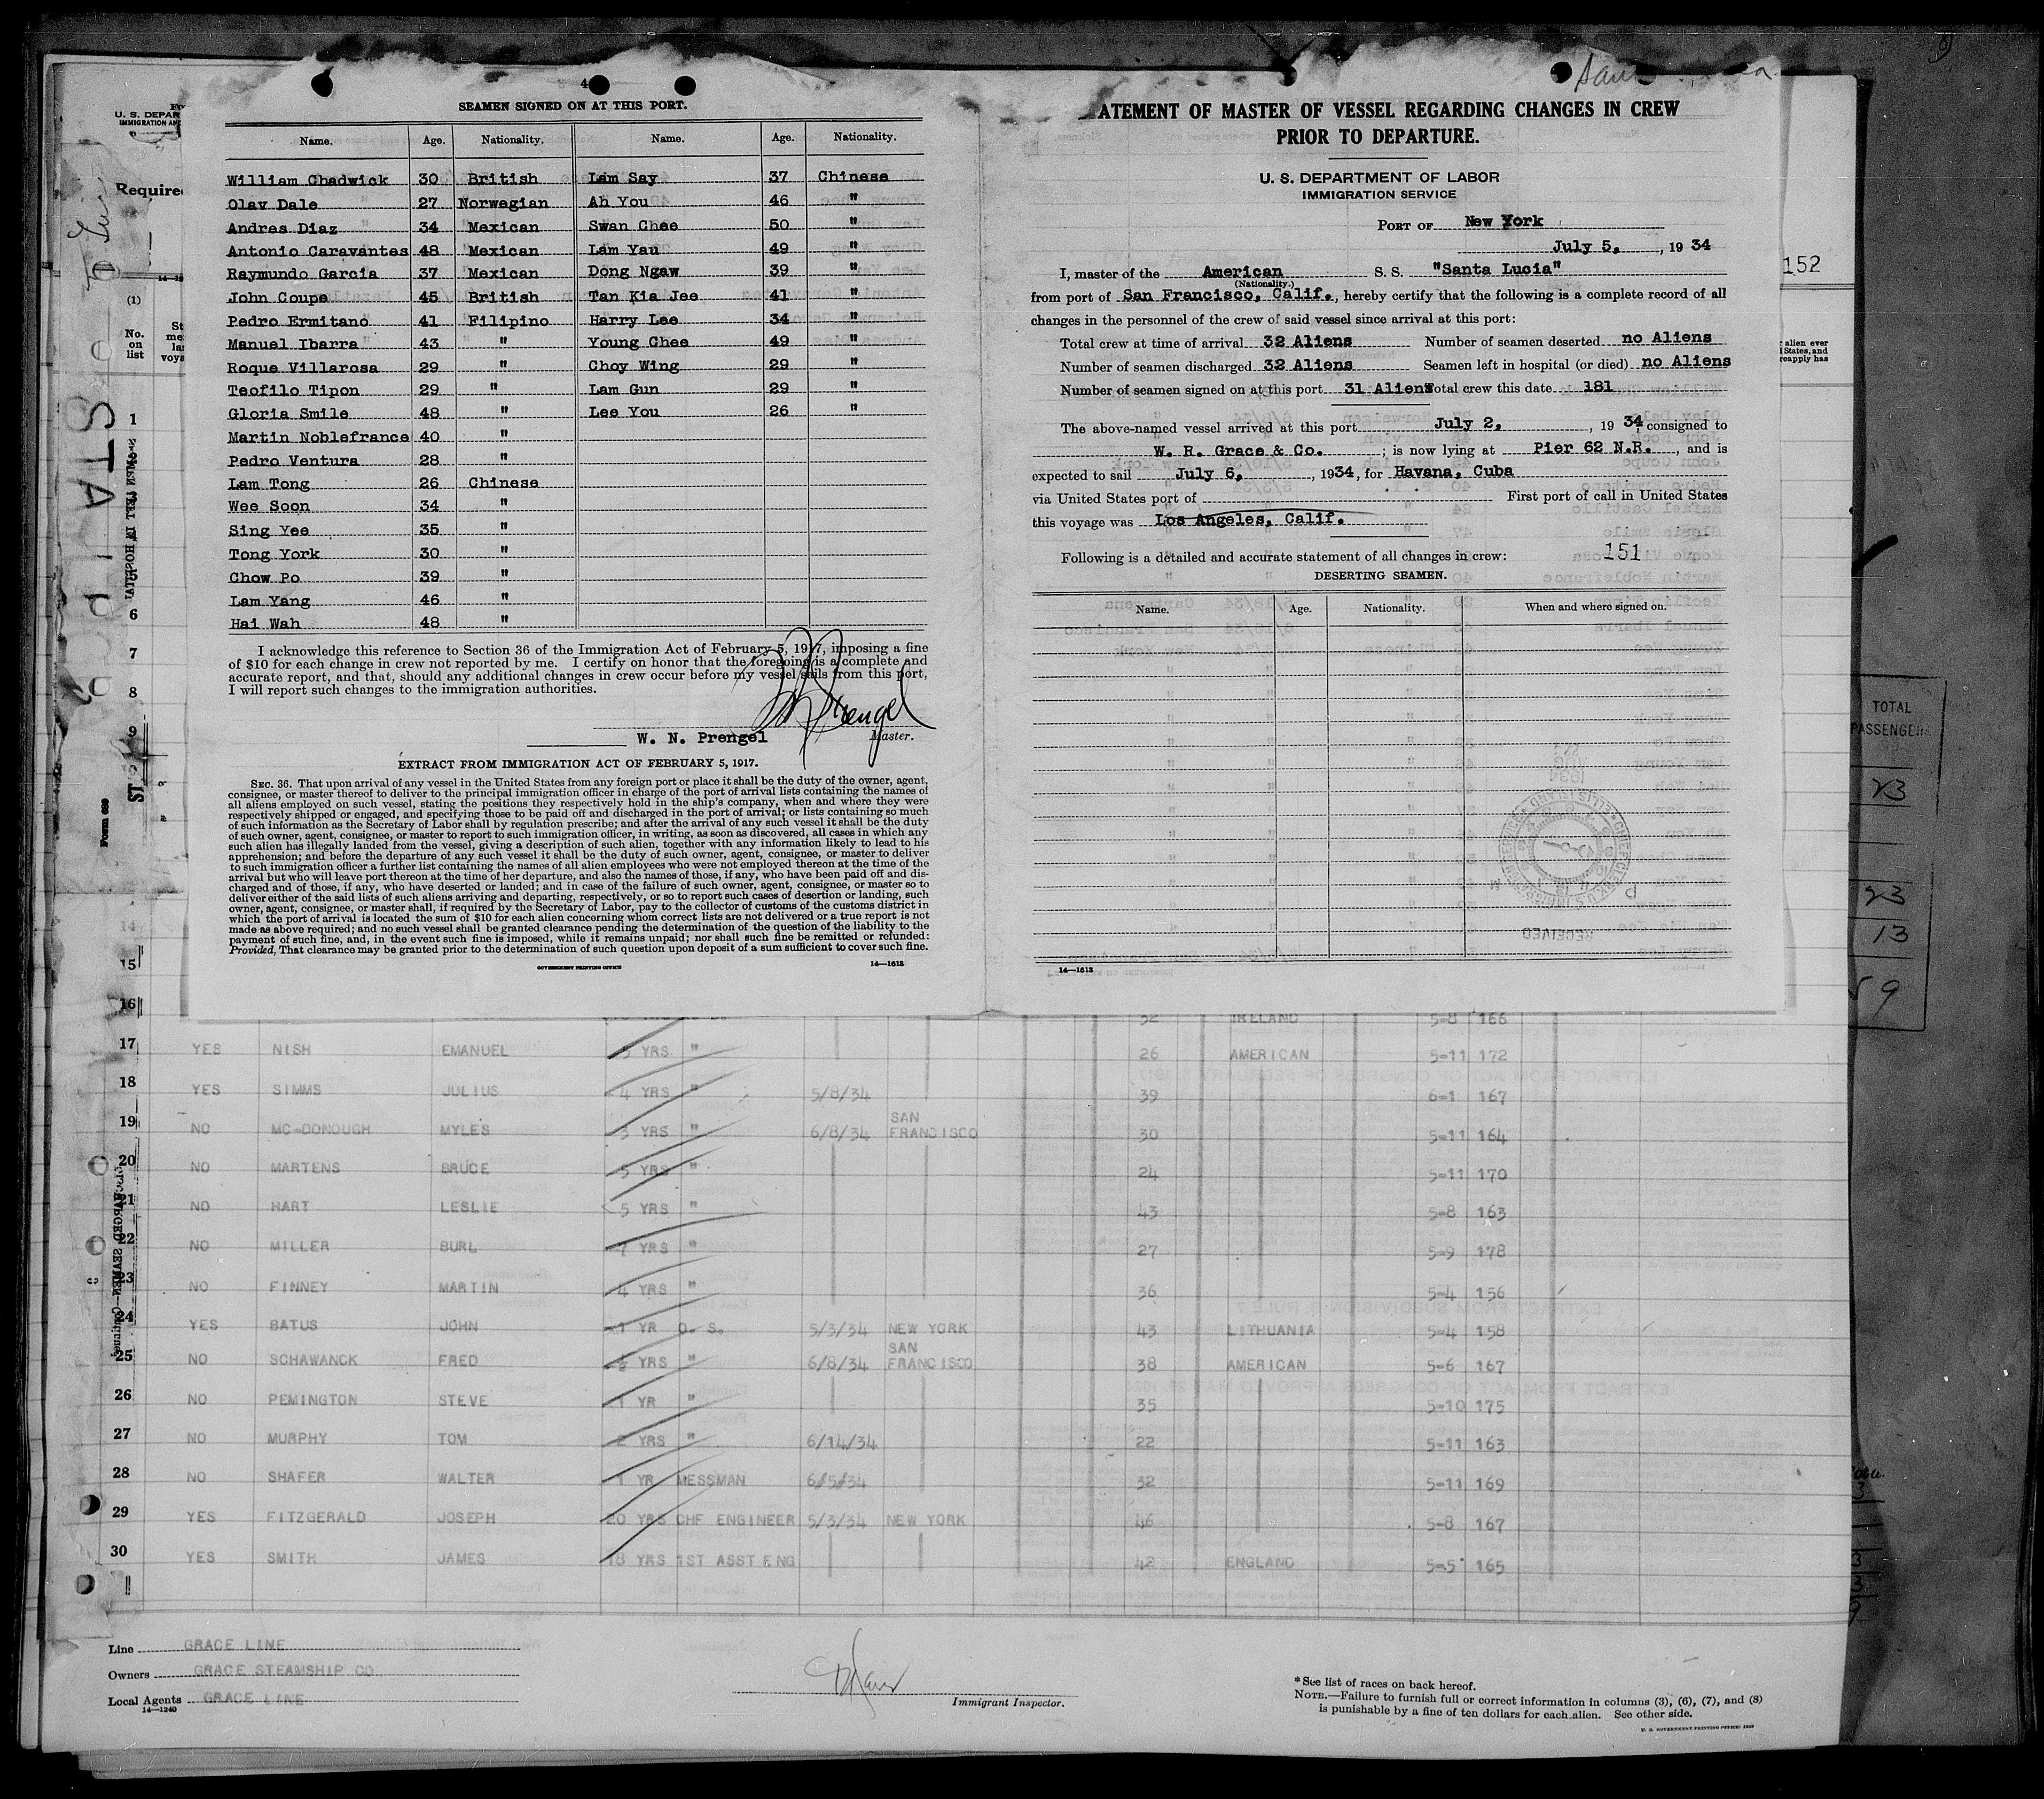 4
SEAMEN SIGNED ON AT THIS PORT.
Name. Age. Nationality. Name. Age. Nationality.
William Chadwick 30 British Lam Say 37 Chinese
Olav Dale 27 Norwegian Ah You 46 "
Andres Diaz 34 Mexican Swan Chee 50 "
Antonio Caravantes 48 Mexican Lam Yau 49 "
Raymundo Garcia 37 Mexican Dong Ngaw 39 "
John Coupe 45 British Tan Kia Jee 41 "
Pedro Ermitano 41 Filipino Harry Lee 34 "
Manuel Ibarra 43 " Young Chee 49 "
Roque Villarosa 29 " Choy Wing 29 "
Teofilo Tipon 29 " Lam Gun 29 "
Gloria Smile 48 " Lee You 26 "
Martin Noblefrance 40 "
Pedro Ventura 28 "
Lam Tong 26 Chinese
Wee Soon 34 "
Sing Yee 35 "
Tong York 30 "
Chow Po 39 "
Lam Yang 46 "
Hai Wah 48 "
I acknowledge this reference to Section 36 of the Immigration Act of February 5, 1917, imposing a fine
of $10 for each change in crew not reported by me. I certify on honor that the foregoing is a complete and
accurate report, and that, should any additional changes in crew occur before my vessel sails from this port,
I will report such changes to the immigration authorities.
W. N. Prengel Master.
EXTRACT FROM IMMIGRATION ACT OF FEBRUARY 5, 1917.
SEC. 36. That upon arrival of any vessel in the United States from any foreign port or place it shall be the duty of the owner, agent,
consignee, or master thereof to deliver to the principal immigration officer in charge of the port of arrival lists containing the names of
all aliens employed on such vessel, stating the positions they respectively hold in the ship's company, when and where they were
respectively shipped or engaged, and specifying those to be paid off and discharged in the port of arrival; or lists containing so much
of such information as the Secretary of Labor shall by regulation prescribe; and after the arrival of any such vessel it shall be the duty
of such owner, agent, consignee, or master to report to such immigration officer, in writing, as soon as discovered, all cases in which any
such alien has illegally landed from the vessel, giving a description of such alien, together with any information likely to lead to his
apprehension; and before the departure of any such vessel it shall be the duty of such owner, agent, consignee, or master to deliver
to such immigration officer a further list containing the names of all alien employees who were not employed thereon at the time of the
arrival but who will leave port thereon at the time of her departure, and also the names of those, if any, who have been paid off and dis-
charged and of those, if any, who have deserted or landed; and in case of the failure of such owner, agent, consignee, or master so to
deliver either of the said lists of such aliens arriving and departing, respectively, or so to report such cases of desertion or landing, such
owner, agent, consignee, or master shall, if required by the Secretary of Labor, pay to the collector of customs of the customs district in
which the port of arrival is located the sum of $10 for each alien concerning whom correct lists are not delivered or a true report is not
made as above required; and no such vessel shall be granted clearance pending the determination of the question of the liability to the
payment of such fine, and, in the event such fine is imposed, while it remains unpaid; nor shall such fine be remitted or refunded:
Provided, That clearance may be granted prior to the determination of such question upon deposit of a sum sufficient to cover such fine.
GOVERNMENT PRINTING OFFICE 14—1613
ATEMENT OF MASTER OF VESSEL REGARDING CHANGES IN CREW
PRIOR TO DEPARTURE.
U. S. DEPARTMENT OF LABOR
IMMIGRATION SERVICE
PORT OF New York
July 5, , 19 34
I, master of the American S. S. "Santa Lucia"
(Nationality.)
from port of San Francisco, Calif., hereby certify that the following is a complete record of all
changes in the personnel of the crew of said vessel since arrival at this port:
Total crew at time of arrival 32 Aliens Number of seamen deserted no Aliens
Number of seamen discharged 32 Aliens Seamen left in hospital (or died) no Aliens
Number of seamen signed on at this port 31 Aliens Total crew this date 181
The above-named vessel arrived at this port July 2, , 19 34, consigned to
W. R. Grace & Co. ; is now lying at Pier 62 N.R. , and is
expected to sail July 6, , 1934, for Havana, Cuba
via United States port of First port of call in United States
this voyage was Los Angeles, Calif.
Following is a detailed and accurate statement of all changes in crew: 151
DESERTING SEAMEN.
Name. Age. Nationality. When and where signed on.
14—1613
152
U. S. DEPAR
IMMIGRATION AN
Require
(1)
No.
on
list
TOTAL
PASSENGER
23
23
13
59
1
6
7
8
9
15
16
32 IRELAND 5-8 166
17 YES NISH EMANUEL YRS " 26 AMERICAN 5-11 172
18 YES SIMMS JULIUS 4 YRS " 5/8/34 39 6-1 167
19 NO MC-DONOUGH MYLES 3 YRS " 6/8/34 SAN FRANCISCO 30 5-11 164
20 NO MARTENS BRUCE 5 YRS " 24 5-11 170
21 NO HART LESLIE 5 YRS " 43 5-8 163
22 NO MILLER BURL 7 YRS " 27 5-9 178
23 NO FINNEY MARTIN 4 YRS " 36 5-4 156
24 YES BATUS JOHN 1 YR O. S. 5/3/34 NEW YORK 43 LITHUANIA 5-4 158
25 NO SCHAWANCK FRED YRS " 6/8/34 SAN FRANCISCO 38 AMERICAN 5-6 167
26 NO PEMINGTON STEVE 1 YR " 35 5-10 175
27 NO MURPHY TOM 2 YRS " 6/14/34 22 5-11 163
28 NO SHAFER WALTER 1 YR MESSMAN 6/5/34 32 5-11 169
29 YES FITZGERALD JOSEPH 20 YRS CHF ENGINEER 5/3/34 NEW YORK 46 5-8 167
30 YES SMITH JAMES 18 YRS 1ST ASST ENG 42 ENGLAND 5-5 165
Line GRACE LINE
Owners GRACE STEAMSHIP CO
Local Agents GRACE LINE
14—1240
Immigrant Inspector.
*See list of races on back hereof.
NOTE.—Failure to furnish full or correct information in columns (3), (6), (7), and (8)
is punishable by a fine of ten dollars for each alien. See other side.